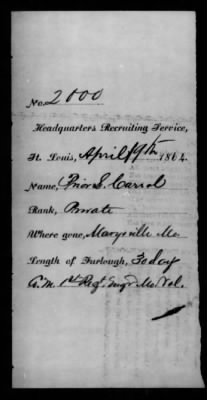 No. 2000
Headquarters Recruiting Service,
St. Louis, April 19th 1864.
Name, Prior S. Carrol
Rank, Private
Where gone, Marysville Mo
Length of Furlough, 30 day
1st Regt Engr Mo Vol.